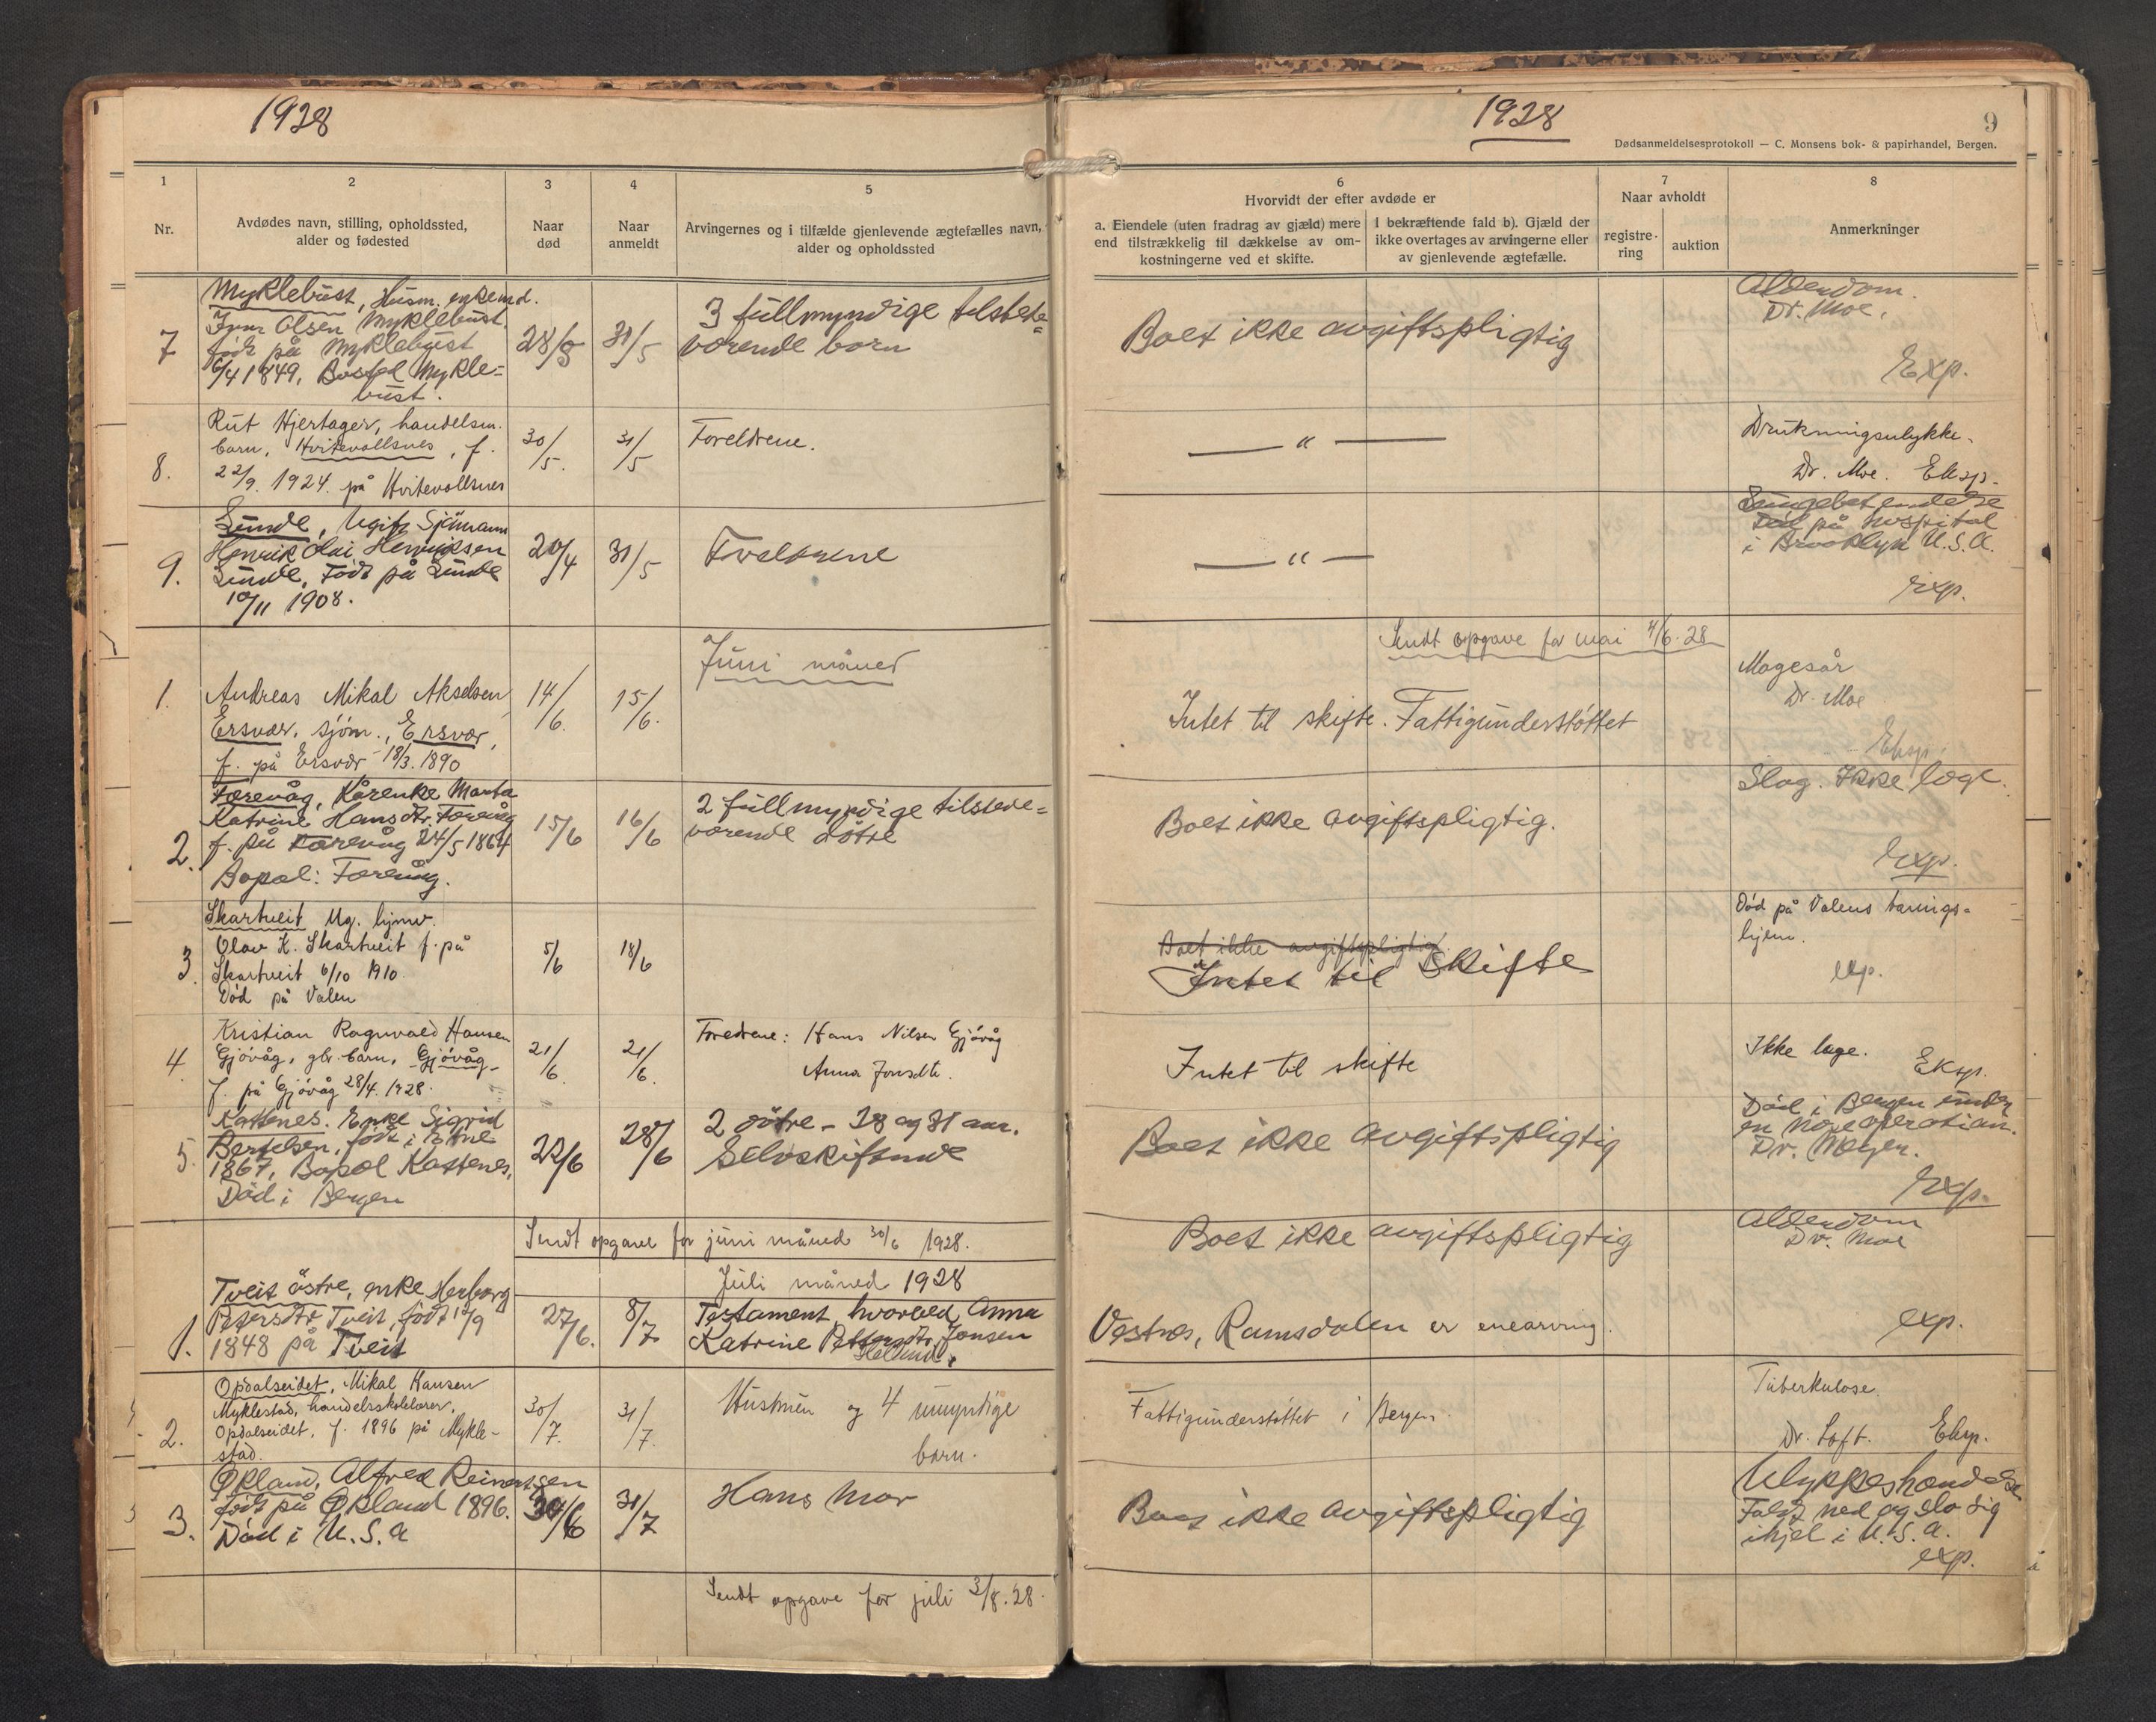 1928
1
2
3
4
5
Nr.
Avdødes navn, stilling, opholdssted,
alder og fødested
Naar
død
Naar
anmeldt
Arvingernes og i tilfælde gjenlevende ægtefælles navn,
alder og opholdssted
7
Myklebust, Husm. enkemd.
Olsen Myklebust.
født på Myklebust
6/4 1849. Bosted Mykle=
bust.
28/5
31/5
3 fullmyndige tilstede=
værende barn
8.
Rut Hjertager, handelsm.
barn, Hvitevollsnes, f.
22/9. 1924. på Hvitevollsnes
30/5.
31/5
Foreldrene.
9.
Lunde, Ugift Sjømann
Henrik Olai Henriksen
Lunde, Født på Lunde
10/11 1908.
20/4
31/5
Foreldrene
Juni måned
1.
Andreas Mikal Akselsen
Ersvær, sjøm., Ersvær,
f. på Ersvær 18/3. 1890
14/6.
15/6.
2.
Færevåg, Kårenke Marta
Katrine Hansdtr. Færevåg
f. på Færevåg 24/5 1864
Bopæl: Færevåg.
15/6
16/6
2 fullmyndige tilstede=
værende døtre
3
Skartveit Ug. hjmv.
Olav K. Skartveit f. på
Skartveit 6/10 1910.
Død på Valen
5/6
18/6
4.
Kristian Ragnvald Hansen
Gjøvåg, gbr. barn, Gjøvåg
f. på Gjøvåg 28/4. 1928.
21/6.
21/6.
Foreldrene: Hans Nilsen Gjøvåg
Anna Jonsdtr.
5.
Kattnes. Enke Sigrid
Bertelsen, født i Etne
1867, Bopæl Kattenes,
Død i Bergen
22/6
28/6
2 døtre - 38 og 31 aar.
Selvskiftende
Sendt opgave for juni måned 30/6 1928.
Juli måned 1928
1.
Tveit østre, enke Herborg
Petersdtr Tveit, født 12/9
1848 på Tveit
27/6.
8/7
Testament, hvorved Anna
Katrine Pettersdtr. Jonsen
2.
Opdalseidet, Mikal Hansen
Myklestad, handelsskolelærer,
Opdalseidet, f. 1896 på Mykle-
stad.
30/7.
31/7.
Hustruen og 4 umyndige
barn.
3.
Økland, Alfred Reinertsen
født på Økland 1896.
Død i U.S.A
30/6
31/7
Hans Mor
Sendt opgave for juli 3/8.28.
1928
9
Dødsanmeldelsesprotokoll — C. Monsens bok- & papirhandel, Bergen.
6
7
8
Hvorvidt der efter avdøde er
Naar avholdt
a. Eiendele (uten fradrag av gjæld) mere
end tilstrækkelig til dækkelse av om-
kostningerne ved et skifte.
I bekræftende fald b). Gjæld der
ikke overtages av arvingerne eller
av gjenlevende ægtefælle.
registre-
ring
auktion
Anmerkninger
Boet ikke avgiftspligtig
Alderdom.
Dr. Moe.
Exp.
— " —
Drukningsulykke.
Dr. Moe. Eksp.
— " —
Lungebetendelse
Død på hospital
i Brooklyn U.S.A.
Exp.
Sendt opgave for mai 4/6.28
Intet til skifte. Fattigunderstøttet
Magesår
Dr. Moe
Eksp.
Boet ikke avgiftspligtig.
Slag. Ikke læge.
Exp.
Boet ikke avgiftspligtig
Intet til skifte
Død på Valens tærings-
hjem.
exp.
Intet til skifte
Ikke læge.
Eksp.
Boet ikke avgiftspligtig
Død i Bergen under
en operation.
Dr. Meyer.
Exp.
Boet ikke avgiftspligtig
Alderdom
Dr. Moe
Vestnes, Ramsdalen er enearving.
exp.
Fattigunderstøttet i Bergen.
Tuberkulose.
Dr. Toft. Eksp.
Boet ikke avgiftspligtig
Ulykkeshændelse
Faldt ned og slo sig
ihjel i U.S.A.
exp.